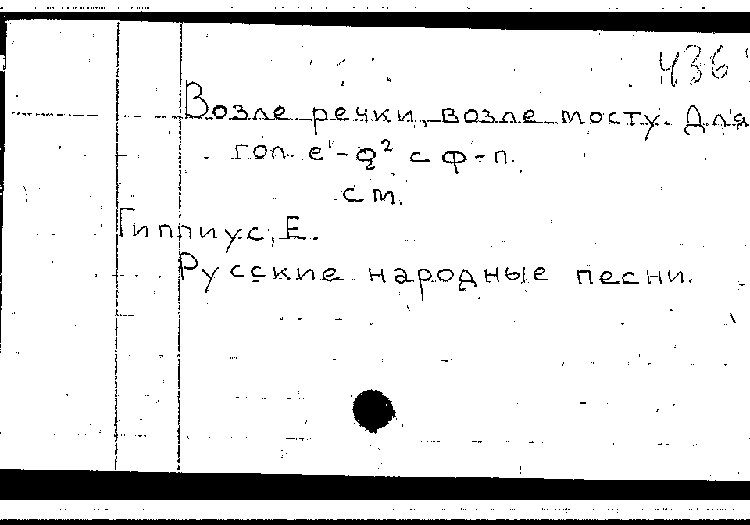 436
Возле речки, возле мосту. Для
гол. e¹-g² с ф-п.
см.
Гиппиус, Е.
Русские народные песни.